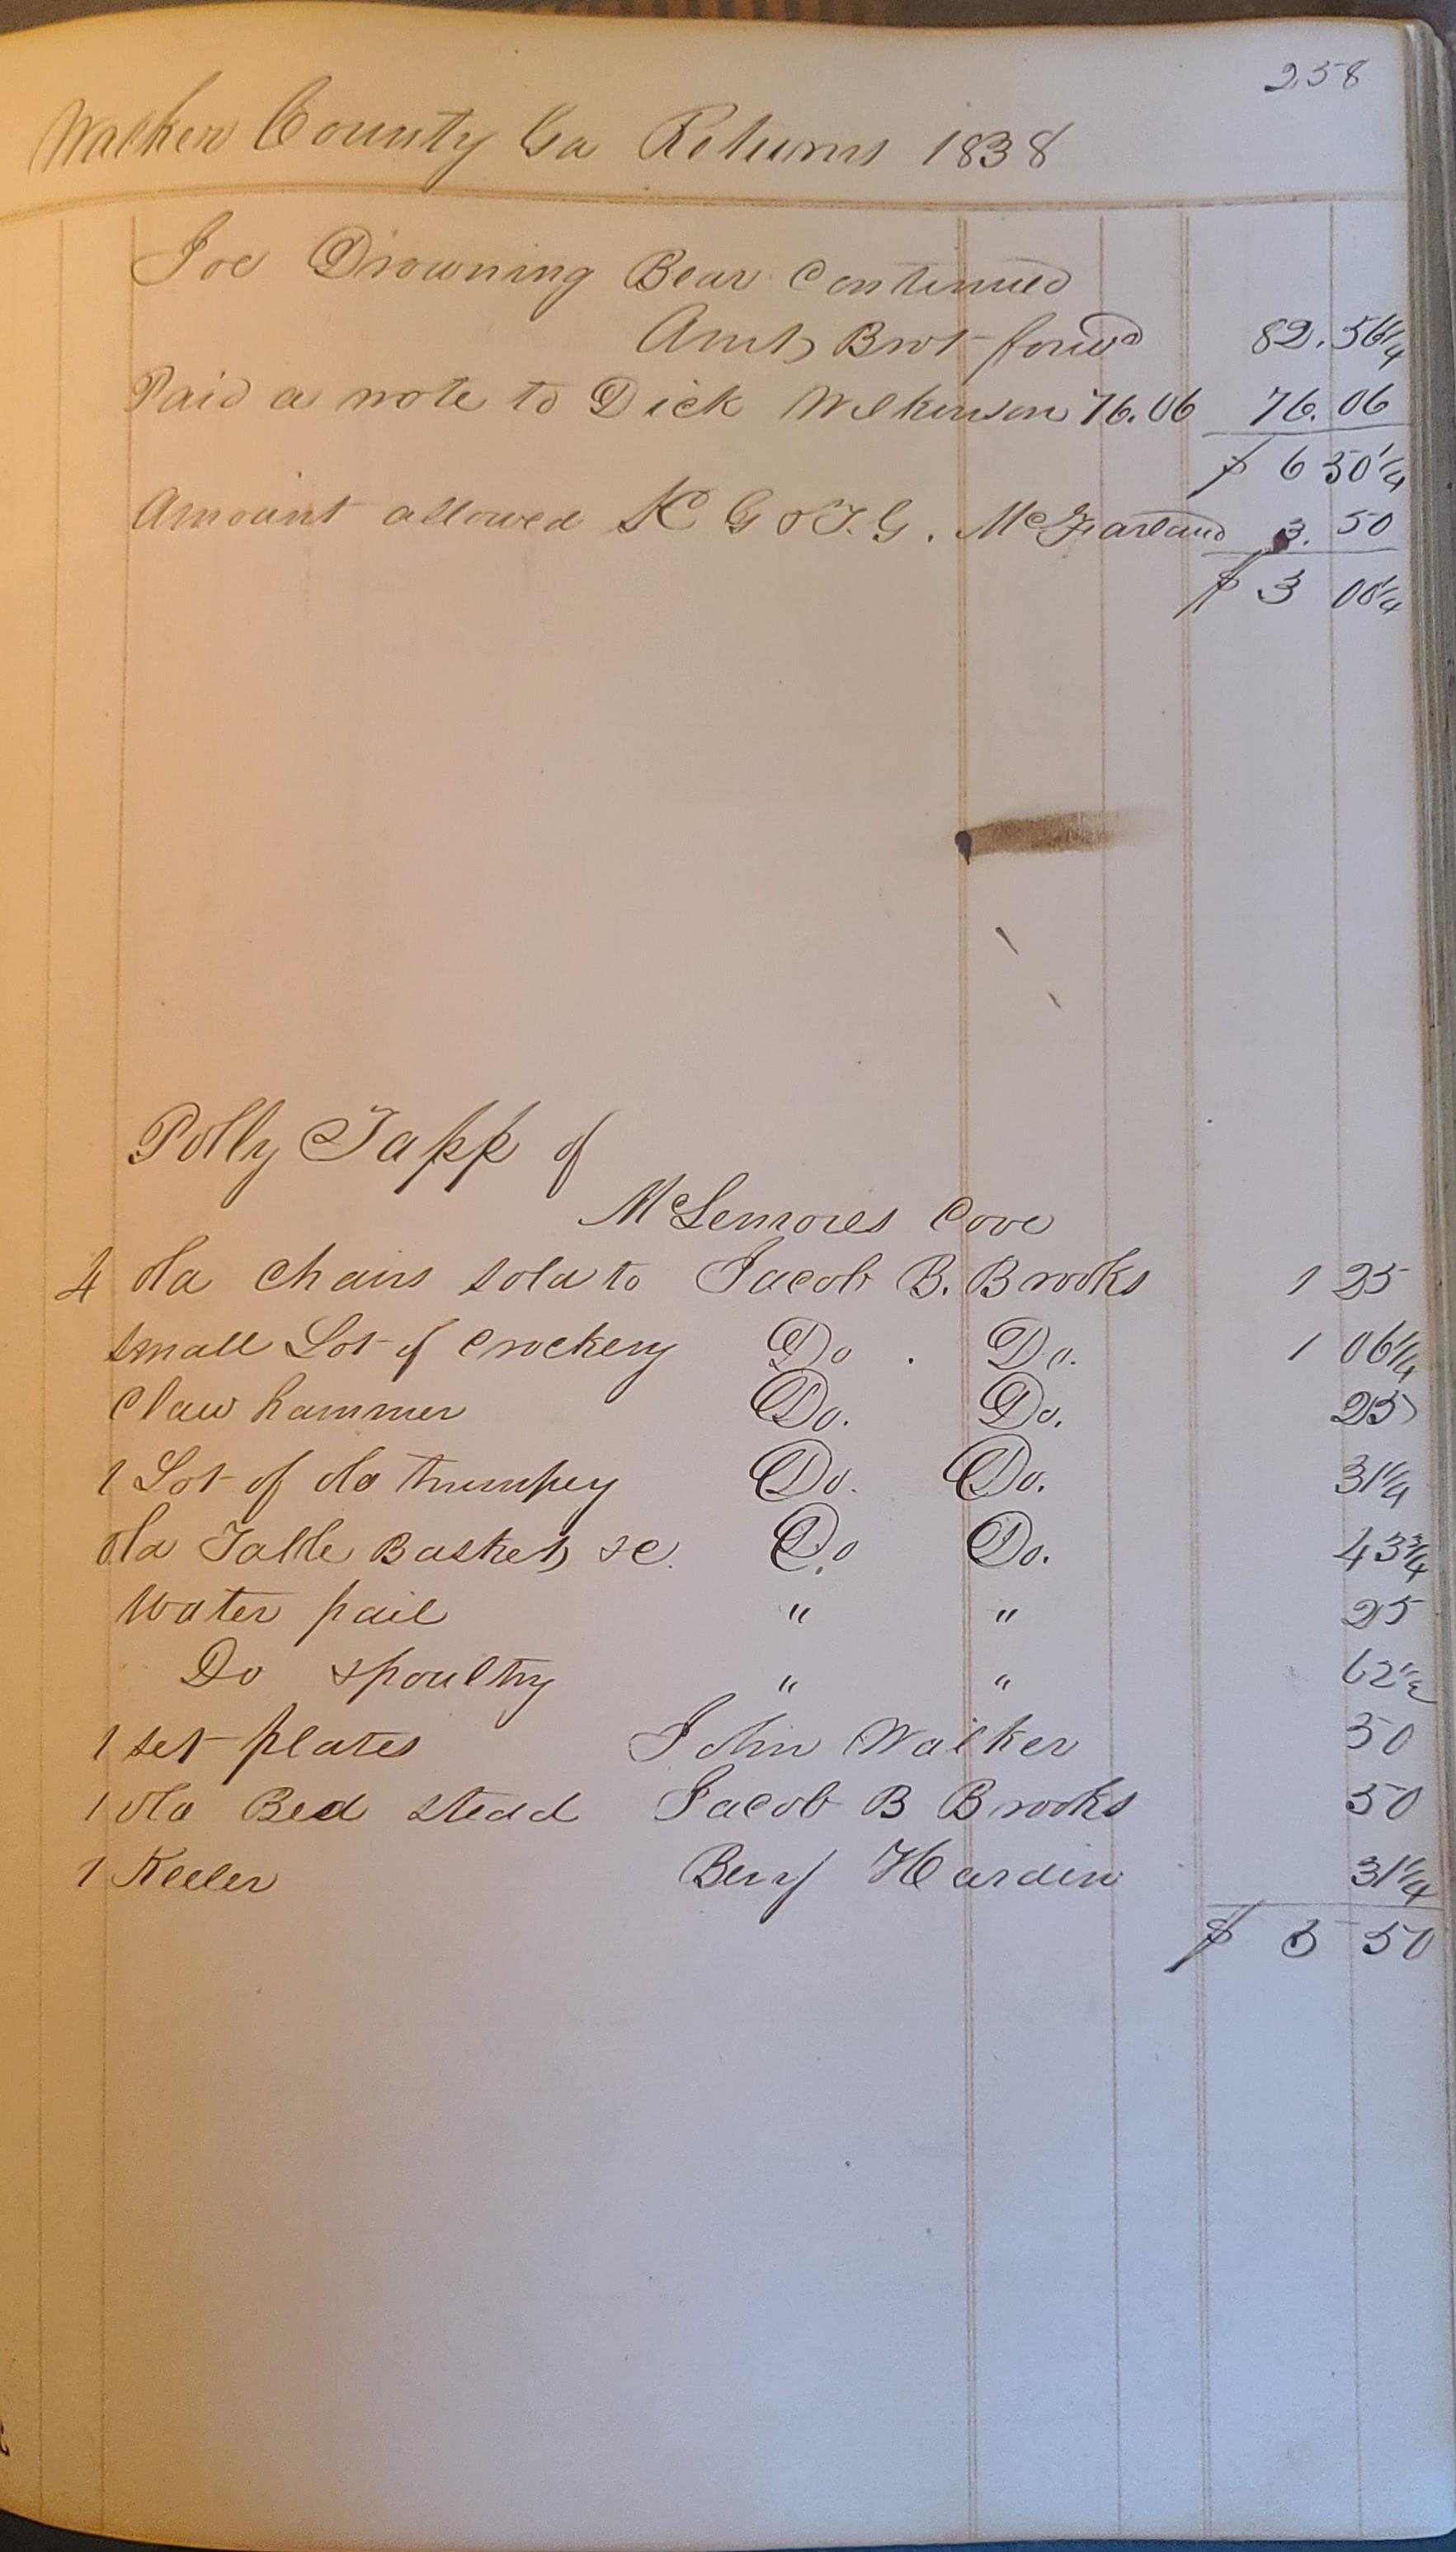 258
Walker County Ga Returns 1838
Joe Drowning Bear Continued
Amt, Brot forwd 82.56 1/4
Paid a note to Dick Wilkinson 76.06 76.06
$ 6 50 1/4
Amount allowed G & T. G. McFarland 3. 50
$ 3 00 1/4
Polly Tapp of
McLemores Cove
4 old Chairs sold to Jacob B. Brooks 1 25
small Lot of Crockery Do. Do. 1 06 1/4
Claw hammer Do. Do. 25
1 Lot of old trumpey Do. Do. 31 1/4
old Table Baskets &c. Do Do. 43 3/4
Water pail " " 25
Do & poultry " " 62 1/2
1 set plates John Walker 50
1 old Bed stead Jacob B Brooks 50
1 Keeler Benj Hardin 31 1/4
$ 5 50